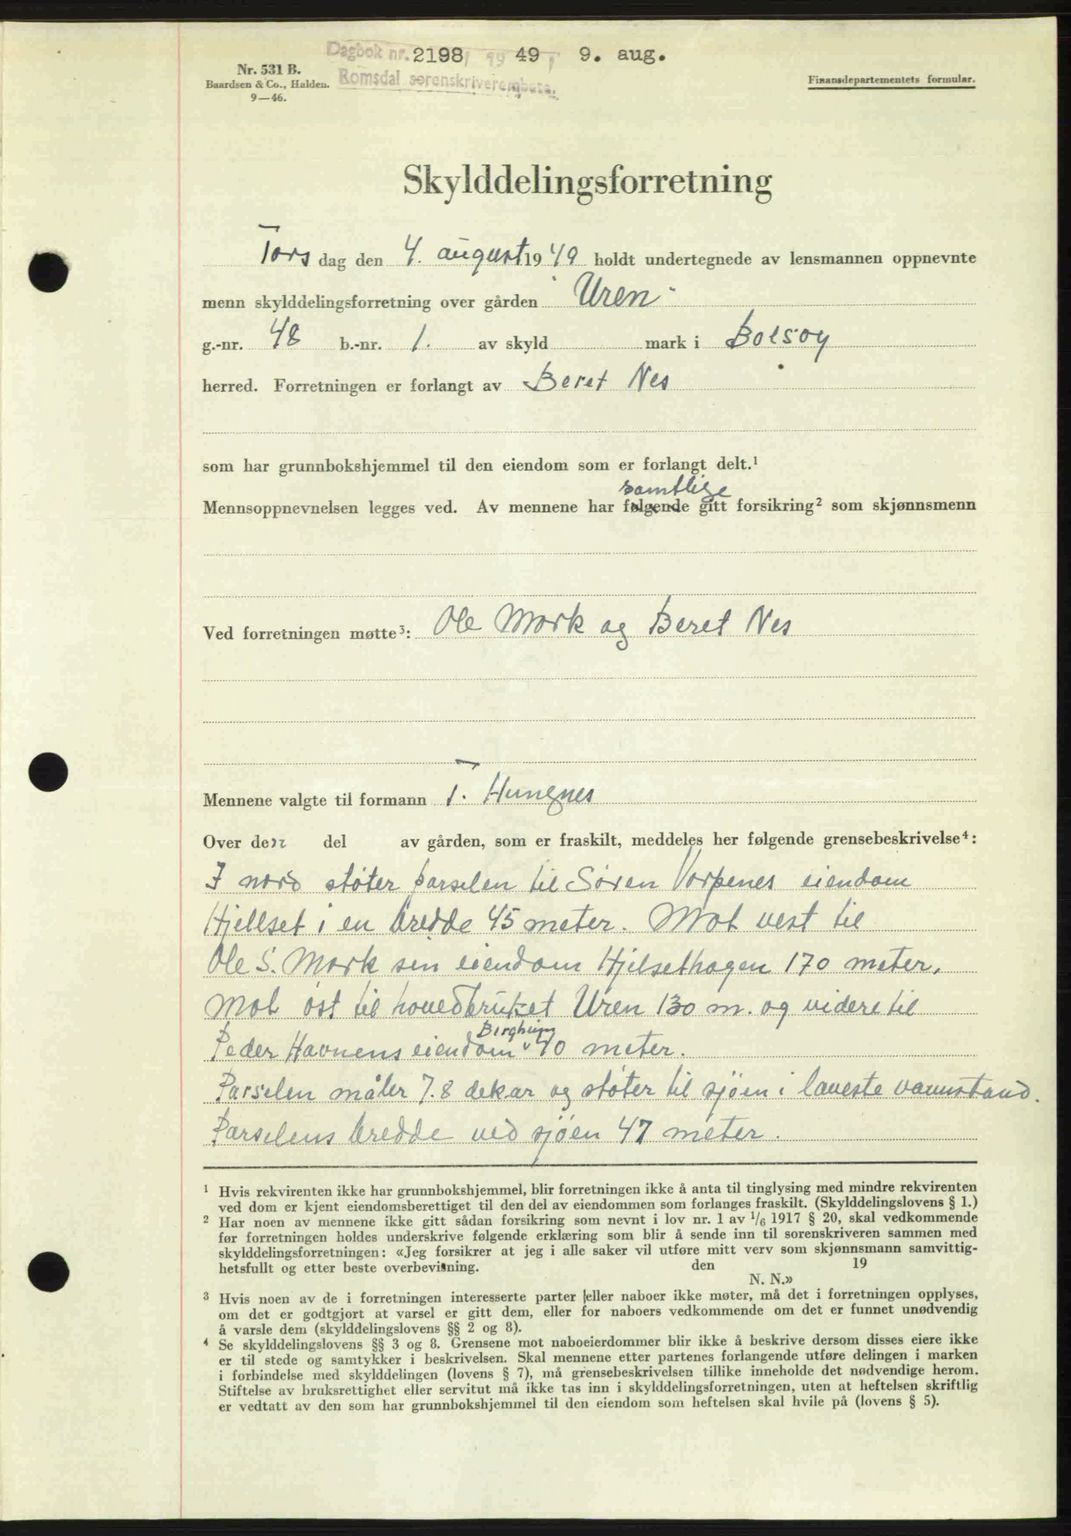 Dagbok nr. 2198 / 1949 / 9. aug.
Romsdal sorenskriverembete.
Nr. 531 B.
Baardsen & Co., Halden.
9—46.
Finansdepartementets formular.
Skylddelingsforretning
Torsdag den 4. august 1949 holdt undertegnede av lensmannen oppnevnte
menn skylddelingsforretning over gården "Uren"
g.-nr. 48 b.-nr. 1. av skyld mark i Bolsøy
herred. Forretningen er forlangt av Beret Nes
som har grunnbokshjemmel til den eiendom som er forlangt delt.¹
samtlige
Mennsoppnevnelsen legges ved. Av mennene har følgende gitt forsikring² som skjønnsmenn
Ved forretningen møtte³: Ole Mork og Beret Nes
Mennene valgte til formann T. Hungnes
Over den del av gården, som er fraskilt, meddeles her følgende grensebeskrivelse⁴:
I nord støter parselen til Søren Vorpenes eiendom
Hjellset i en bredde 45 meter. Mot vest til
Ole S. Mork sin eiendom Hjelsethagen 170 meter.
Mot øst til hovedbruket Uren 130 m. og videre til
Bergheim
Peder Havnens eiendom " 40 meter.
Parselen måler 7.8 dekar og støter til sjøen i laveste vannstand.
Parselens bredde ved sjøen 47 meter.
¹ Hvis rekvirenten ikke har grunnbokshjemmel, blir forretningen ikke å anta til tinglysing med mindre rekvirenten
ved dom er kjent eiendomsberettiget til den del av eiendommen som forlanges fraskilt. (Skylddelingslovens § 1.)
² Har noen av mennene ikke gitt sådan forsikring som nevnt i lov nr. 1 av 1/6 1917 § 20, skal vedkommende
før forretningen holdes underskrive følgende erklæring som blir å sende inn til sorenskriveren sammen med
skylddelingsforretningen: «Jeg forsikrer at jeg i alle saker vil utføre mitt verv som skjønnsmann samvittig-
hetsfullt og etter beste overbevisning. den 19
N. N.»
³ Hvis noen av de i forretningen interesserte parter eller naboer ikke møter, må det i forretningen opplyses,
om det er godtgjort at varsel er gitt dem, eller for naboers vedkommende om det er funnet unødvendig
å varsle dem (skylddelingslovens §§ 2 og 8).
⁴ Se skylddelingslovens §§ 3 og 8. Grensene mot naboeierdommer blir ikke å beskrive dersom disses eiere ikke
er til stede og samtykker i beskrivelsen. Skal mennene etter partenes forlangende utføre delingen i marken
i forbindelse med skylddelingen (lovens § 7), må grensebeskrivelsen tillike inneholde det nødvendige herom.
Stiftelse av bruksrettighet eller servitut må ikke tas inn i skylddelingsforretningen, uten at heftelsen skriftlig
er vedtatt av den som har grunnbokshjemmel til den eiendom som heftelsen skal hvile på (lovens § 5).